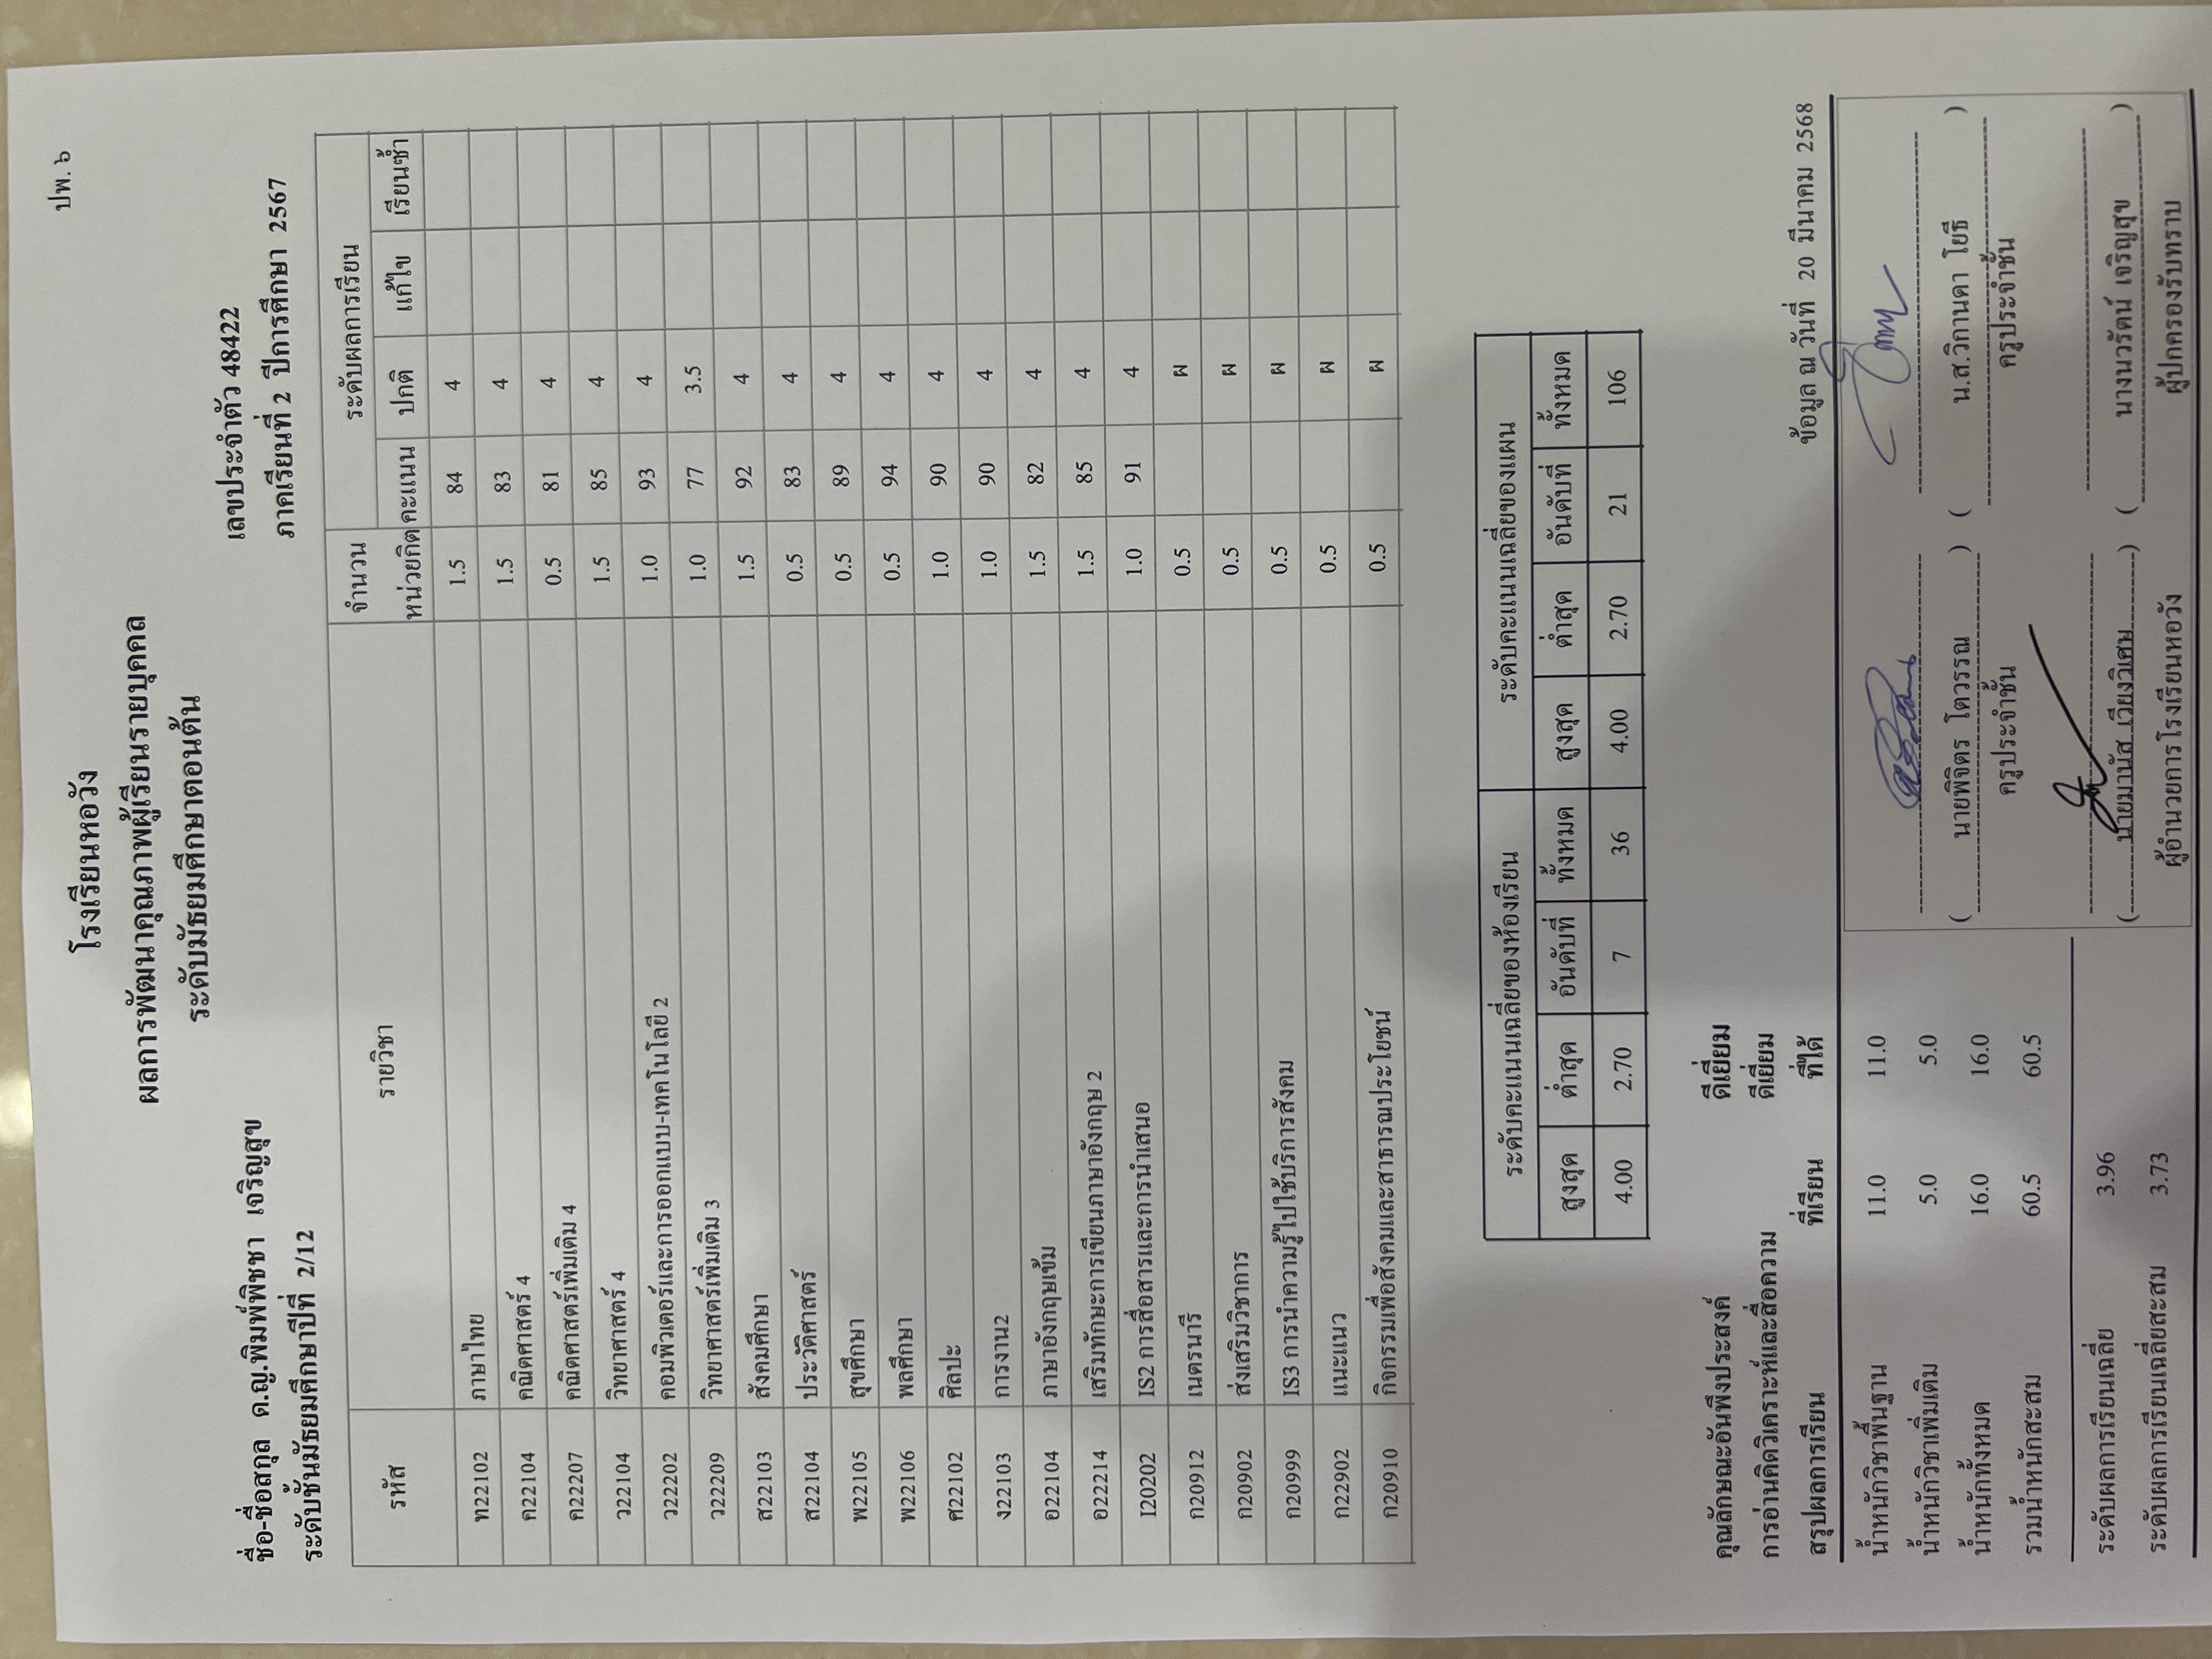 ปพ. ๖
โรงเรียนหอวัง
ผลการพัฒนาคุณภาพผู้เรียนรายบุคคล
ระดับมัธยมศึกษาตอนต้น
ชื่อ-ชื่อสกุล ด.ญ.พิมพ์พิชชา เจริญสุข เลขประจำตัว 48422
ระดับชั้นมัธยมศึกษาปีที่ 2/12 ภาคเรียนที่ 2 ปีการศึกษา 2567
รหัส รายวิชา จำนวน หน่วยกิต ระดับผลการเรียน
คะแนน ปกติ แก้ไข เรียนซ้ำ
ท22102 ภาษาไทย 1.5 84 4
ค22104 คณิตศาสตร์ 4 1.5 83 4
ค22207 คณิตศาสตร์เพิ่มเติม 4 0.5 81 4
ว22104 วิทยาศาสตร์ 4 1.5 85 4
ว22202 คอมพิวเตอร์และการออกแบบ-เทคโนโลยี 2 1.0 93 4
ว22209 วิทยาศาสตร์เพิ่มเติม 3 1.0 77 3.5
ส22103 สังคมศึกษา 1.5 92 4
ส22104 ประวัติศาสตร์ 0.5 83 4
พ22105 สุขศึกษา 0.5 89 4
พ22106 พลศึกษา 0.5 94 4
ศ22102 ศิลปะ 1.0 90 4
ง22103 การงาน2 1.0 90 4
อ22104 ภาษาอังกฤษเข้ม 1.5 82 4
อ22214 เสริมทักษะการเขียนภาษาอังกฤษ 2 1.5 85 4
I20202 IS2 การสื่อสารและการนำเสนอ 1.0 91 4
ก20912 เนตรนารี 0.5 ผ
ก20902 ส่งเสริมวิชาการ 0.5 ผ
ก20999 IS3 การนำความรู้ไปใช้บริการสังคม 0.5 ผ
ก22902 แนะแนว 0.5 ผ
ก20910 กิจกรรมเพื่อสังคมและสาธารณประโยชน์ 0.5 ผ
ระดับคะแนนเฉลี่ยของห้องเรียน ระดับคะแนนเฉลี่ยของแผน
สูงสุด ต่ำสุด อันดับที่ ทั้งหมด สูงสุด ต่ำสุด อันดับที่ ทั้งหมด
4.00 2.70 7 36 4.00 2.70 21 106
คุณลักษณะอันพึงประสงค์ ดีเยี่ยม
การอ่านคิดวิเคราะห์และสื่อความ ดีเยี่ยม
สรุปผลการเรียน ที่เรียน ที่ได้ ข้อมูล ณ วันที่ 20 มีนาคม 2568
น้ำหนักวิชาพื้นฐาน 11.0 11.0
น้ำหนักวิชาเพิ่มเติม 5.0 5.0
น้ำหนักทั้งหมด 16.0 16.0
รวมน้ำหนักสะสม 60.5 60.5
ระดับผลการเรียนเฉลี่ย 3.96
ระดับผลการเรียนเฉลี่ยสะสม 3.73
( นายพิจิตร โตวรรณ ) ( น.ส.วิกานดา โยธี )
ครูประจำชั้น ครูประจำชั้น
( นายมานัส เวียงวิเศษ ) ( นางนวรัตน์ เจริญสุข )
ผู้อำนวยการโรงเรียนหอวัง ผู้ปกครองรับทราบ